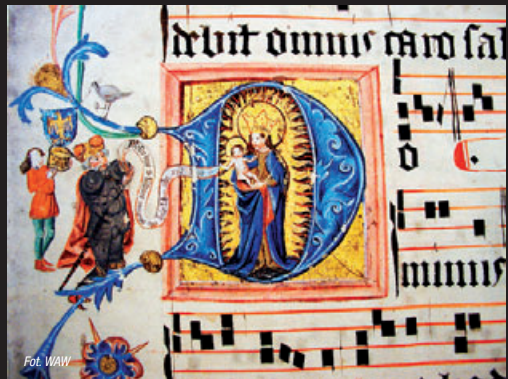 debit omnis caro sal
D o
minus
Fot. WAW